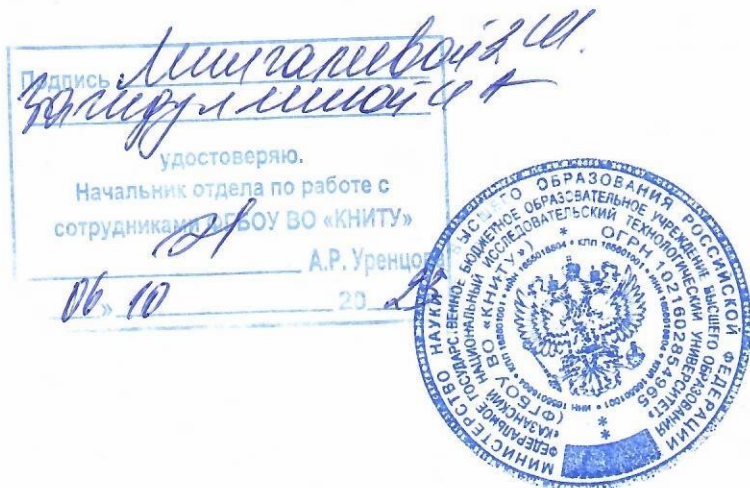 Подпись Мингалиевой З Ш.
Загидуллиной И А
удостоверяю.
Начальник отдела по работе с
сотрудниками ФГБОУ ВО «КНИТУ»
А.Р. Уренцова
06 » 10 20
МИНИСТЕРСТВО НАУКИ И ВЫСШЕГО ОБРАЗОВАНИЯ РОССИЙСКОЙ ФЕДЕРАЦИИ
ФЕДЕРАЛЬНОЕ ГОСУДАРСТВЕННОЕ БЮДЖЕТНОЕ ОБРАЗОВАТЕЛЬНОЕ УЧРЕЖДЕНИЕ ВЫСШЕГО ОБРАЗОВАНИЯ
«КАЗАНСКИЙ НАЦИОНАЛЬНЫЙ ИССЛЕДОВАТЕЛЬСКИЙ ТЕХНОЛОГИЧЕСКИЙ УНИВЕРСИТЕТ»
(ФГБОУ ВО «КНИТУ») * ОГРН 1021602854965 *